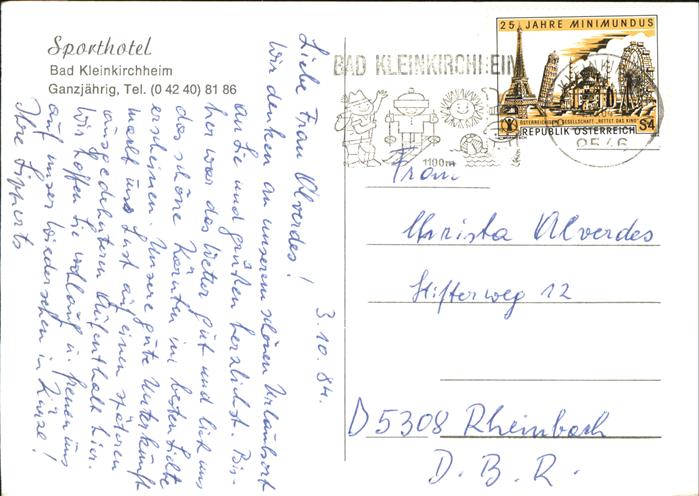 Sporthotel
Bad Kleinkirchheim
Ganzjährig, Tel. (0 42 40) 81 86
3.10.84.
Liebe Frau Alverdes!
Wir denken an unserem schönen Urlaubsort
an Sie und grüßen herzlichst. Bis-
her war das Wetter gut und ließ uns
das schöne Kärnten im besten Lichte
erscheinen. Unsere gute Unterkunft
macht uns Lust auf einen späteren
ausgedehnteren Aufenthalt hier.
Wir hoffen Sie wohlauf u. freuen uns
auf unser Wiedersehen in Kürze!
Ihre Lipperts
BAD KLEINKIRCHHEIM
1100m
9546
25 JAHRE MINIMUNDUS
ÖSTERREICHISCHE GESELLSCHAFT „RETTET DAS KIND"
REPUBLIK ÖSTERREICH S4
Frau
Christa Alverdes
Stifterweg 12
D 5308 Rheinbach
D.B.R.